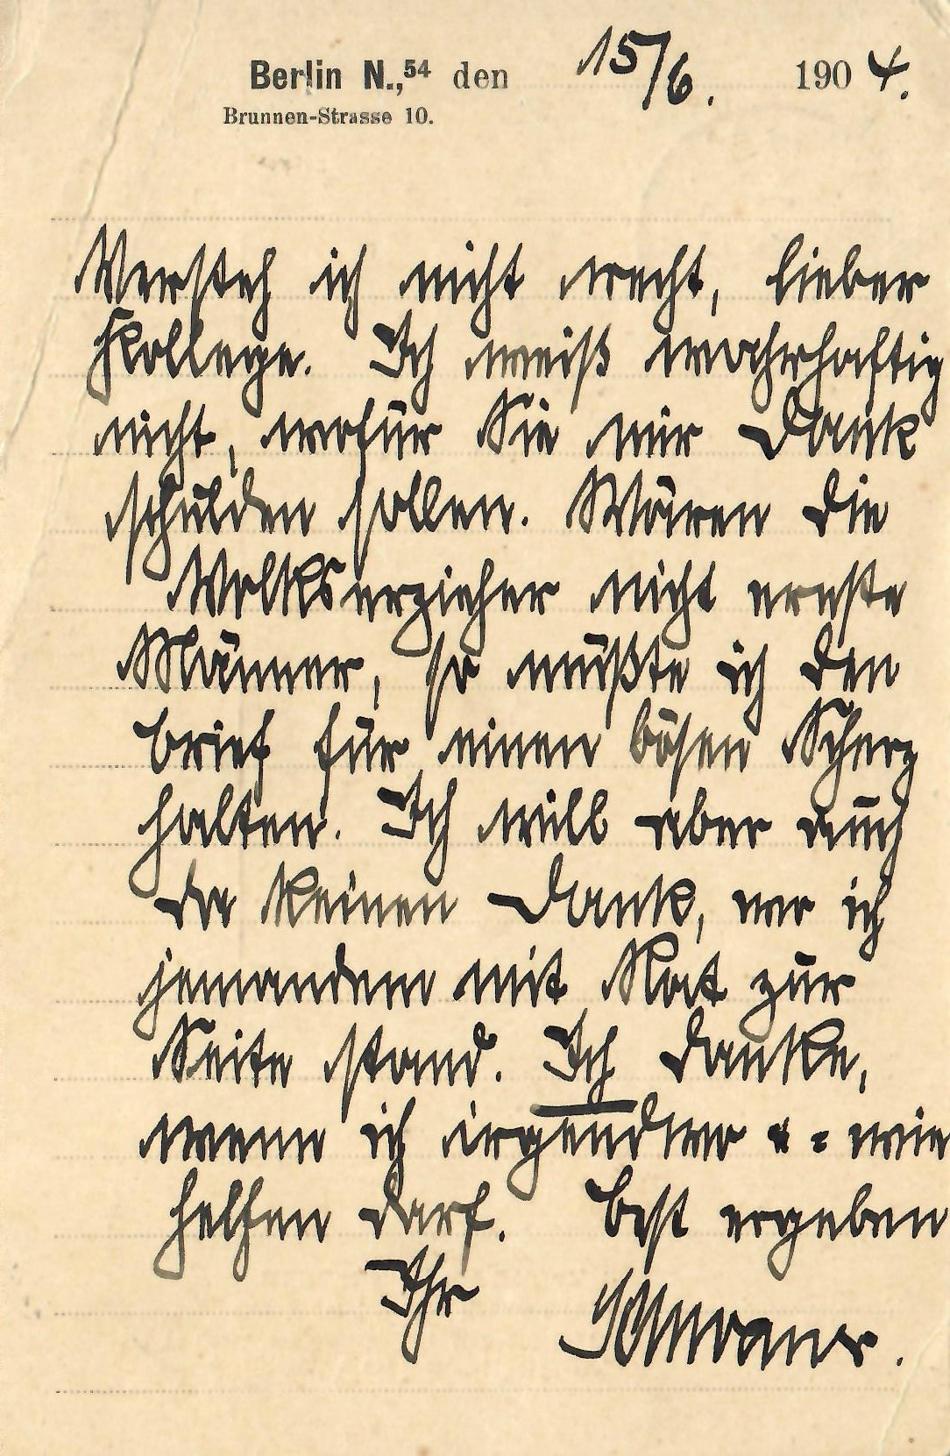 Berlin N.,54 den 15/6. 1904.
Brunnen-Strasse 10.
Versteh ich nicht recht, lieber
Kollege. Ich weiß wahrhaftig
nicht, wofür Sie mir Dank
schulden sollen. Wären die
Volkserzieher nicht ernste
Männer, so müßte ich den
Brief für einen bösen Scherz
halten. Ich will aber auch
da keinen Dank, wo ich
jemandem mit Rat zur
Seite stand. Ich danke,
wenn ich irgendwo u. = wie
helfen darf. Best ergeben
Ihr Schwaner.